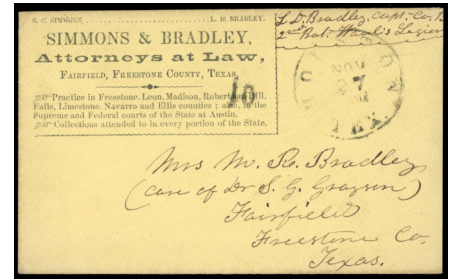 S. C. SIMMONS. L. D. BRADLEY.
SIMMONS & BRADLEY,
Attorneys at Law,
FAIRFIELD, FREESTONE COUNTY, TEXAS,
Practice in Freestone, Leon, Madison, Robertson, Hill,
Falls, Limestone, Navarro and Ellis counties; also, in the
Supreme and Federal courts of the State at Austin.
Collections attended to in every portion of the State.
L. D. Bradley, Capt. Co.
2nd Bat. Waul's Legion
10
HOUSTON
TEX
Mrs M. R. Bradley
(care of Dr S. G. Grayson)
Fairfield
Freestone Co.
Texas.